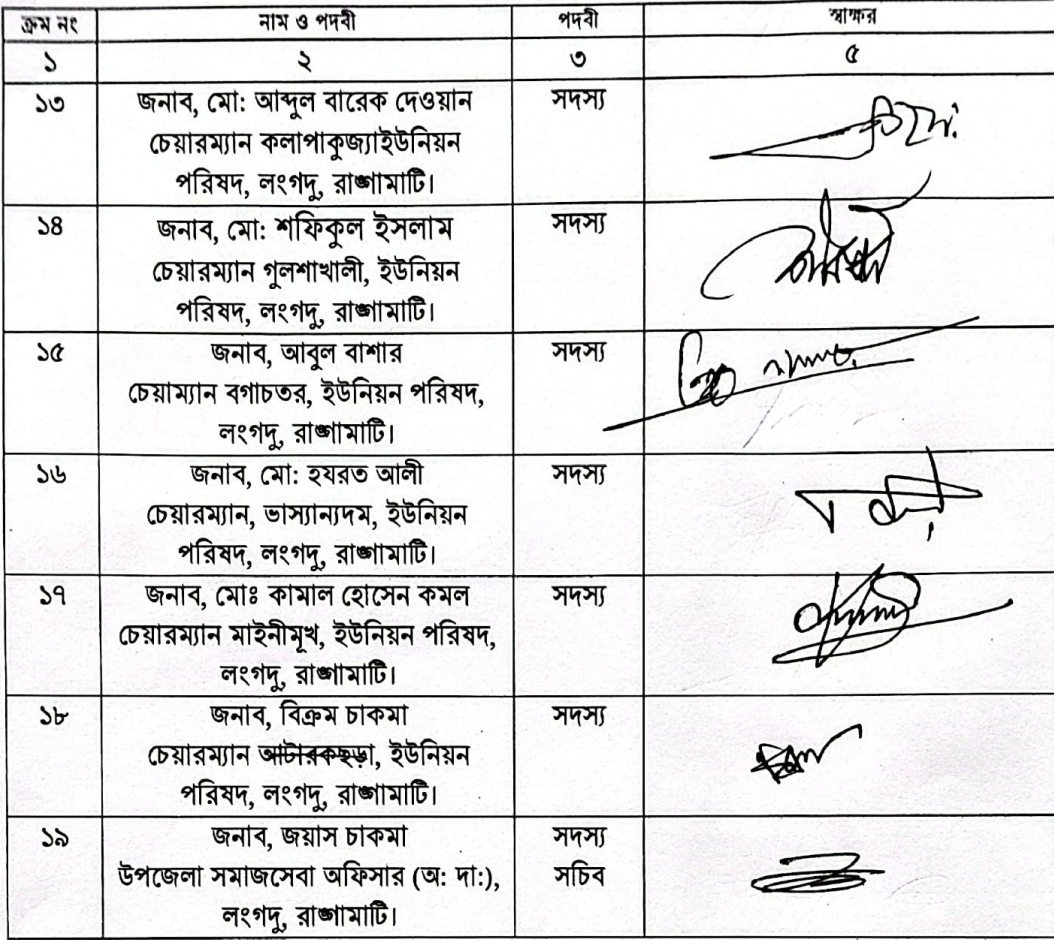 ক্রম নং নাম ও পদবী পদবী স্বাক্ষর
১ ২ ৩ ৫
১৩ জনাব, মো: আব্দুল বারেক দেওয়ান সদস্য
চেয়ারম্যান কলাপাকুজ্যাইউনিয়ন
পরিষদ, লংগদু, রাঙ্গামাটি।
১৪ জনাব, মো: শফিকুল ইসলাম সদস্য
চেয়ারম্যান গুলশাখালী, ইউনিয়ন
পরিষদ, লংগদু, রাঙ্গামাটি।
১৫ জনাব, আবুল বাশার সদস্য
চেয়াম্যান বগাচতর, ইউনিয়ন পরিষদ,
লংগদু, রাঙ্গামাটি।
১৬ জনাব, মো: হযরত আলী সদস্য
চেয়ারম্যান, ভাস্যান্যদম, ইউনিয়ন
পরিষদ, লংগদু, রাঙ্গামাটি।
১৭ জনাব, মোঃ কামাল হোসেন কমল সদস্য
চেয়ারম্যান মাইনীমূখ, ইউনিয়ন পরিষদ,
লংগদু, রাঙ্গামাটি।
১৮ জনাব, বিক্রম চাকমা সদস্য
চেয়ারম্যান আটারকছড়া, ইউনিয়ন
পরিষদ, লংগদু, রাঙ্গামাটি।
১৯ জনাব, জয়াস চাকমা সদস্য
উপজেলা সমাজসেবা অফিসার (অ: দা:), সচিব
লংগদু, রাঙ্গামাটি।